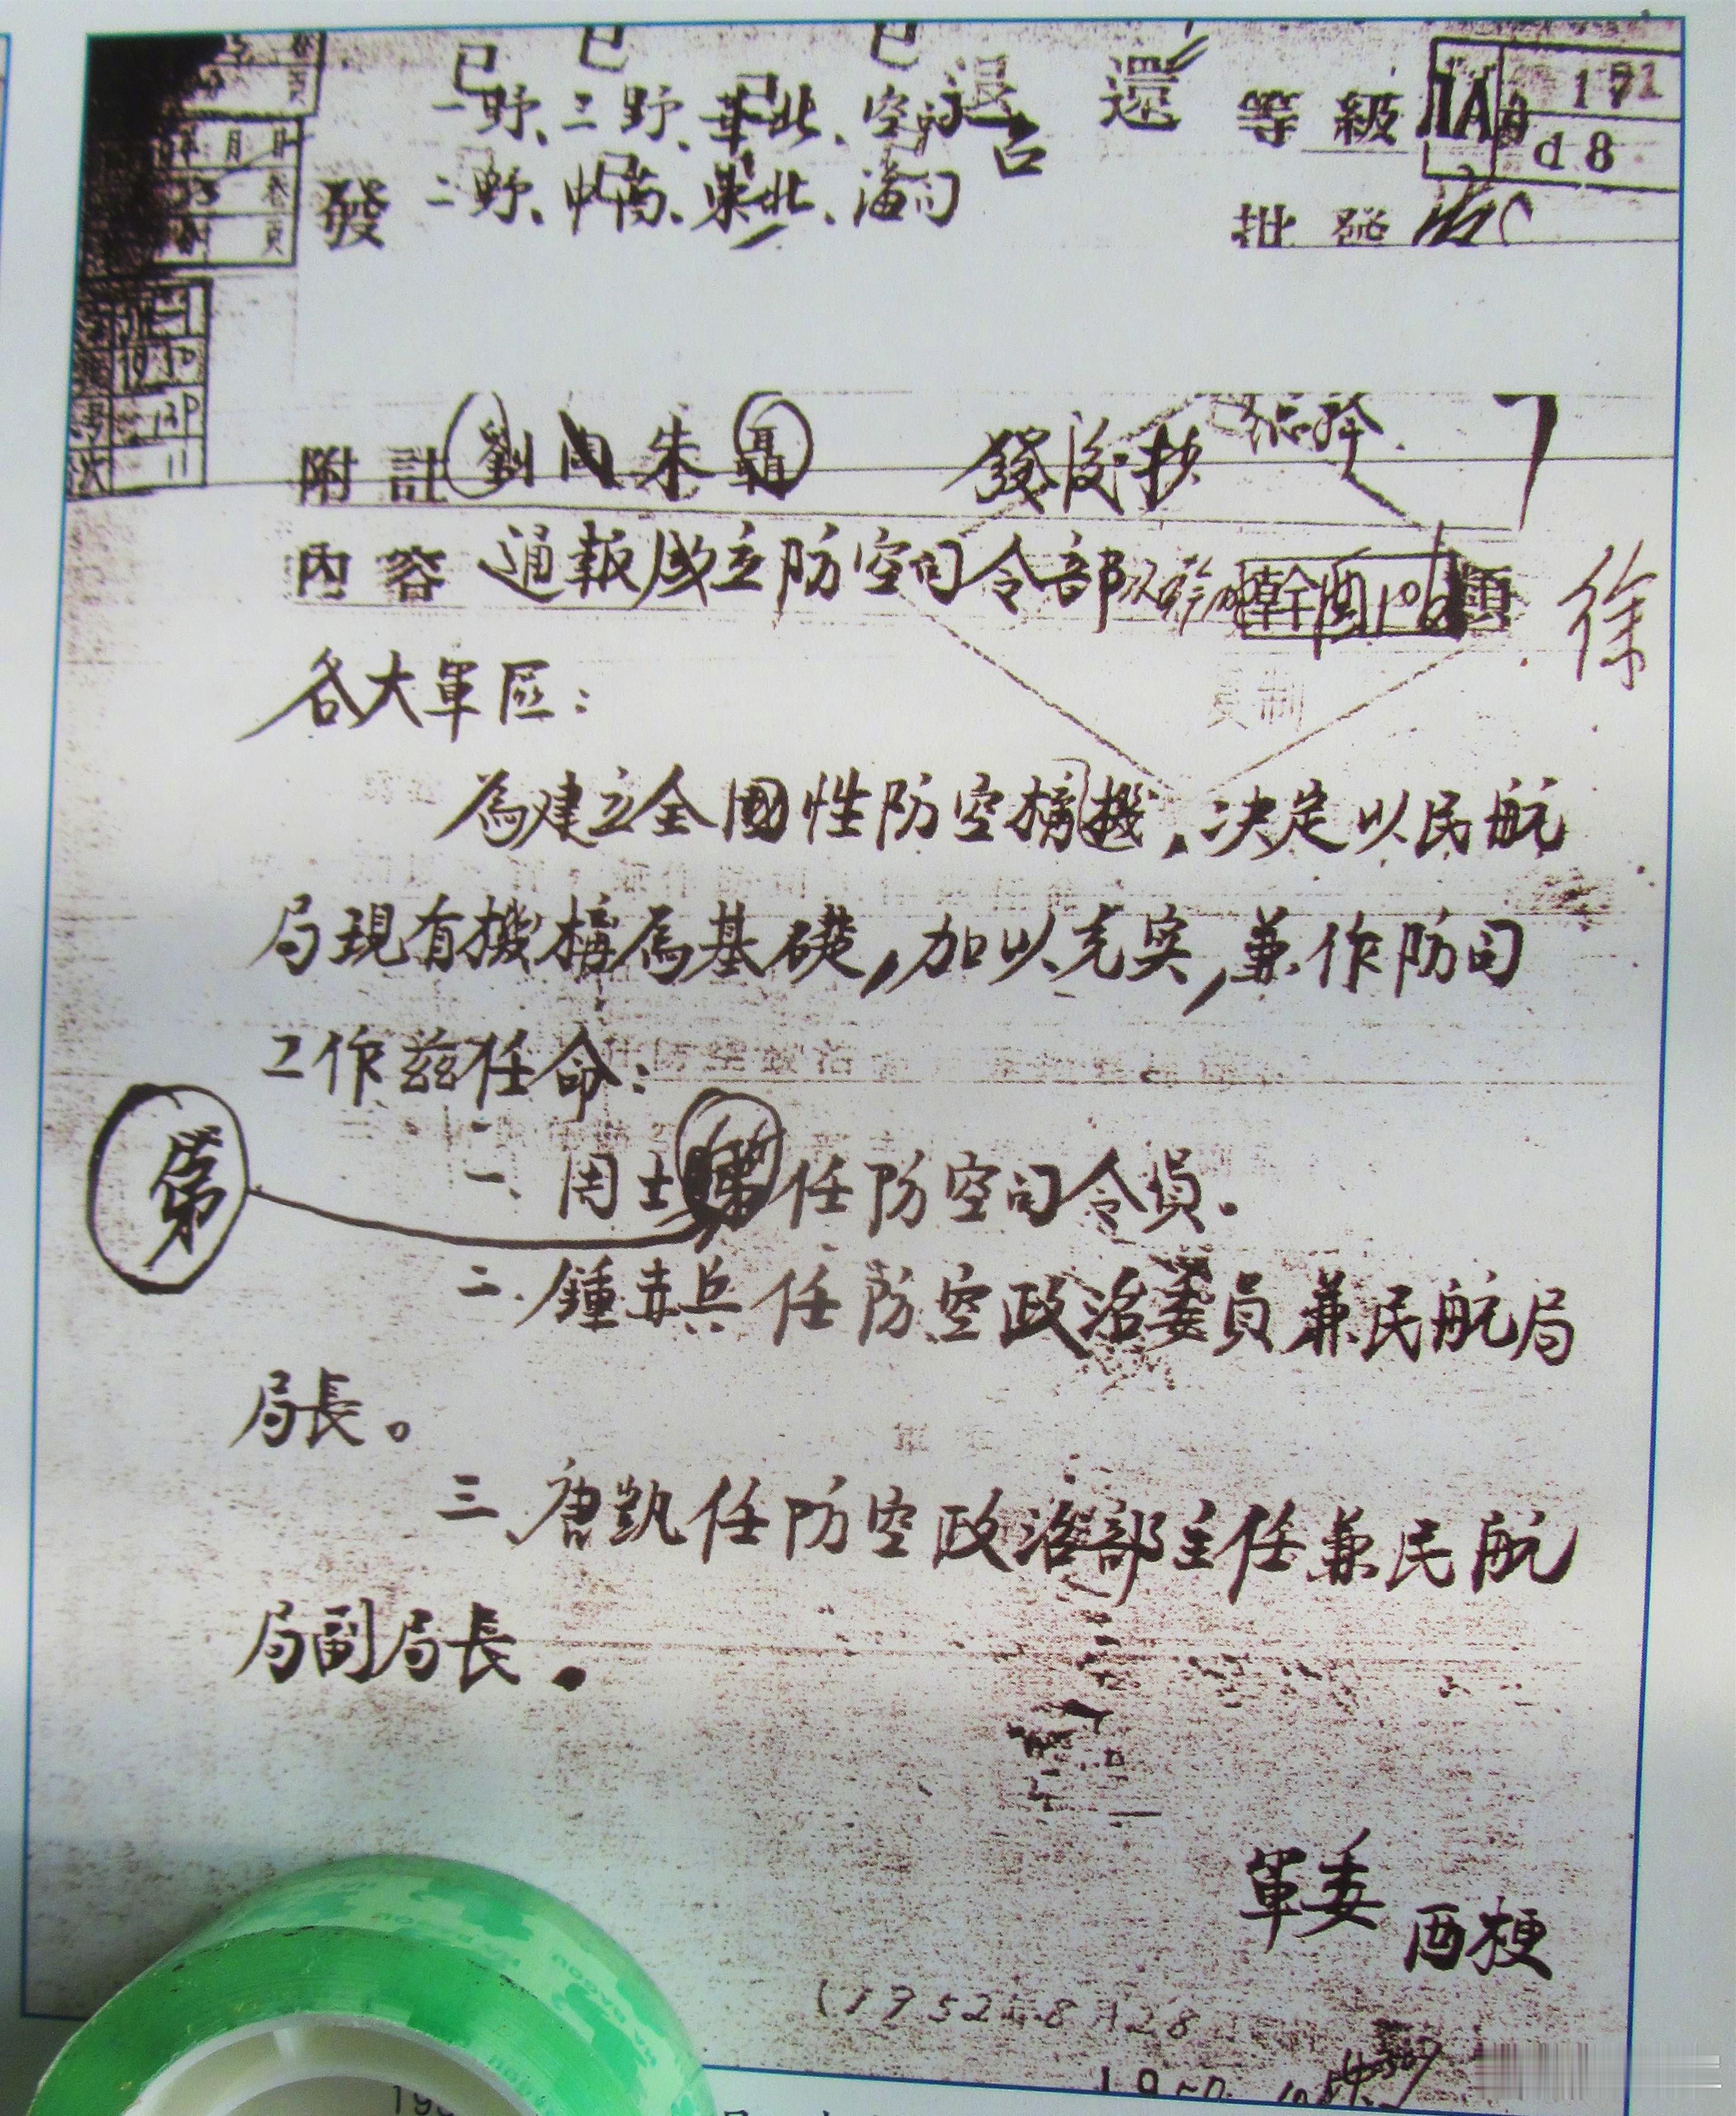 一野、三野、華北、空司 退還 等級 AAA 171
d8
發 二野、中南、東北、海司 批發
附計 劉 周 朱 聶 發後抄
內容 通報成立防空司令部 徐
复制
各大軍區：
為建立全國性防空構機，决定以民航
局現有機構為基礎，加以充实，兼作防司
工作兹任命：
一、周士第任防空司令員。
第
二、鍾赤兵任防空政治委員兼民航局
局長。
三、唐凯任防空政治部主任兼民航
局副局長。
軍委 酉梗
(1952年8月28